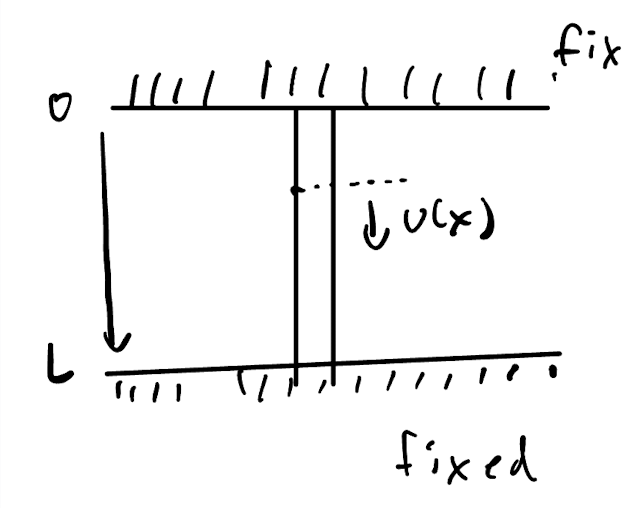 fix
0
u(x)
L
fixed